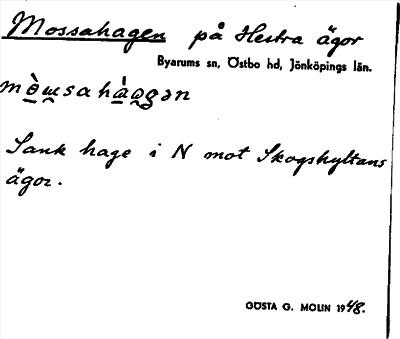 Mossahagen på Hestra ägor
Byarums sn, Östbo hd, Jönköpings län.
Sank hage i N mot Skogshyltans
ägor.
GÖSTA G. MOLIN 1948.